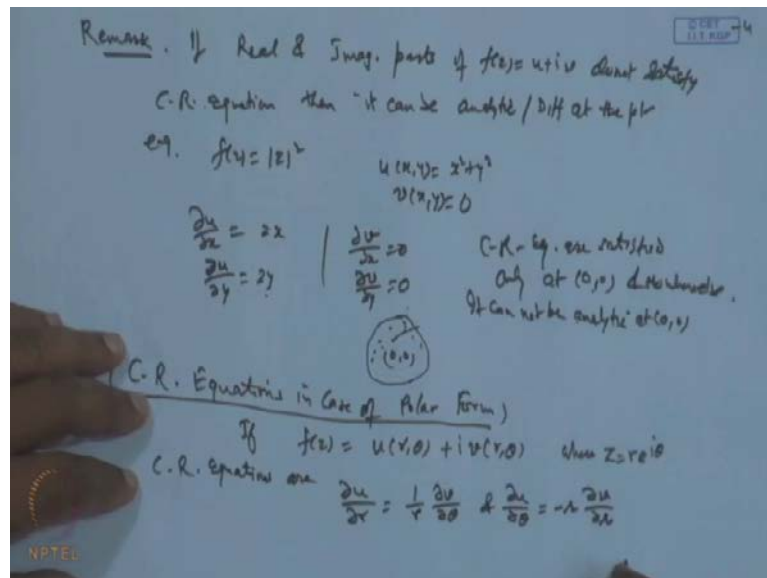 Remark. If Real & Imag. parts of f(z)= u+iv do not satisfy
C.R. equation then it can be analytic / Diff at the pt
eg. f(z)= |z|²
u(x,y)= x²+y²
v(x,y)= 0
∂u/∂x = 2x
∂u/∂y = 2y
∂v/∂x = 0
∂v/∂y = 0
C-R- Eq. are satisfied
only at (0,0) & nowhere else.
It can not be analytic at (0,0)
(0,0)
C.R. Equations in Case of Polar Form)
If f(z) = u(r,θ) + i v(r,θ) where z=re^iθ
C.R. Equations are ∂u/∂r = 1/r ∂v/∂θ & ∂u/∂θ = -r ∂v/∂r
© CET
I.I.T. KGP
NPTEL